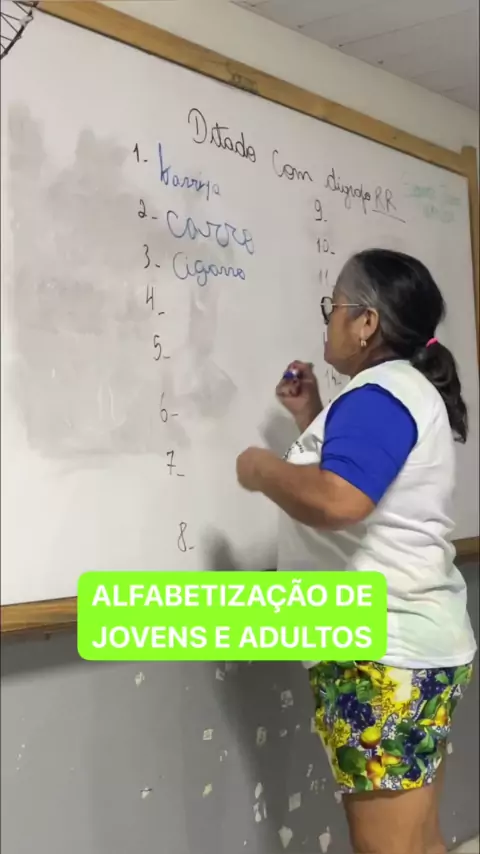 Ditado com dígrafo RR
1- barriga
2- carro
3- Cigarro
4-
5-
6-
7-
8-
9-
10-
11
14-
ALFABETIZAÇÃO DE
JOVENS E ADULTOS